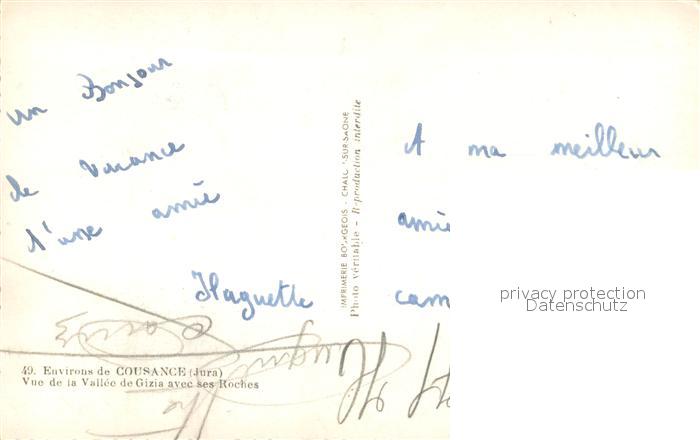 un Bonjour
de vacance
d'une amie
Huguette
A ma meilleur
amie
cam
IMPRIMERIE BOURGEOIS - CHALON-SUR-SAONE
Photo véritable - Reproduction interdite
privacy protection
Datenschutz
49. Environs de COUSANCE (Jura)
Vue de la Vallée de Gizia avec ses Roches